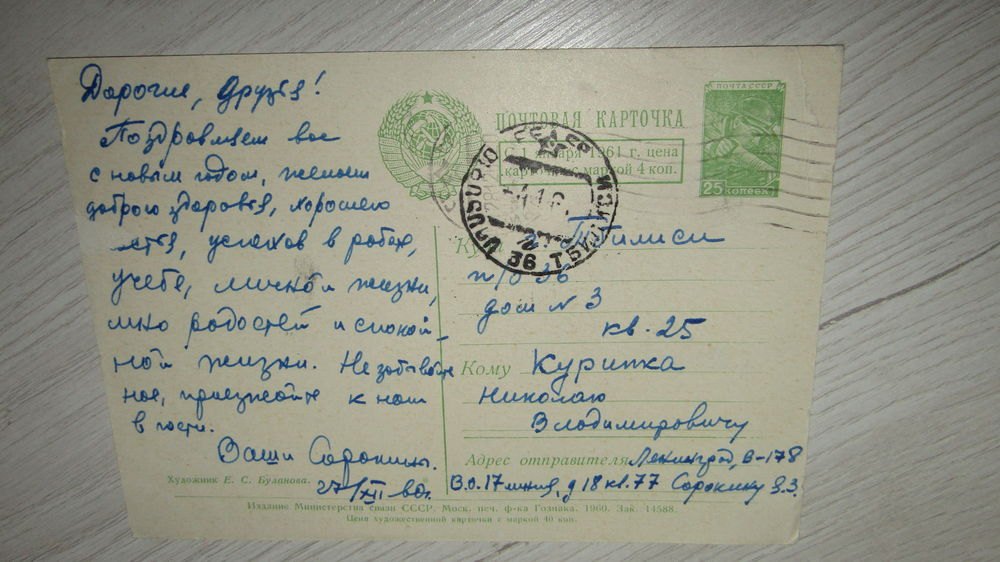 Дорогие, друзья!
Поздравляем вас
с новым годом, желаем
доброго здоровья, хорошего
успехов в работе,
учебе, личной жизни,
мно радостей и спокой-
ной жизни. Не забывайте
нас, приезжайте к нам
в гости.
Ваши Сорокины.
27/XII 60г.
Художник Е. С. Буланова.
ПОЧТОВАЯ КАРТОЧКА
С 1 января 1961 г. цена
карточки с маркой 4 коп.
ПОЧТА СССР
25 КОПЕЕК
СССР
36 ТБИЛИСИ
Куда г. Тбилиси
п/о 36
дом N 3
кв. 25
Кому Курипка
Николаю
Владимировичу
Адрес отправителя Ленинград, В-178
В.О. 17 линия, д 18 кв. 77 Сорокину
Издание Министерства связи СССР. Моск. печ. ф-ка Гознака. 1960. Зак. 14588.
Цена художественной карточки с маркой 40 коп.